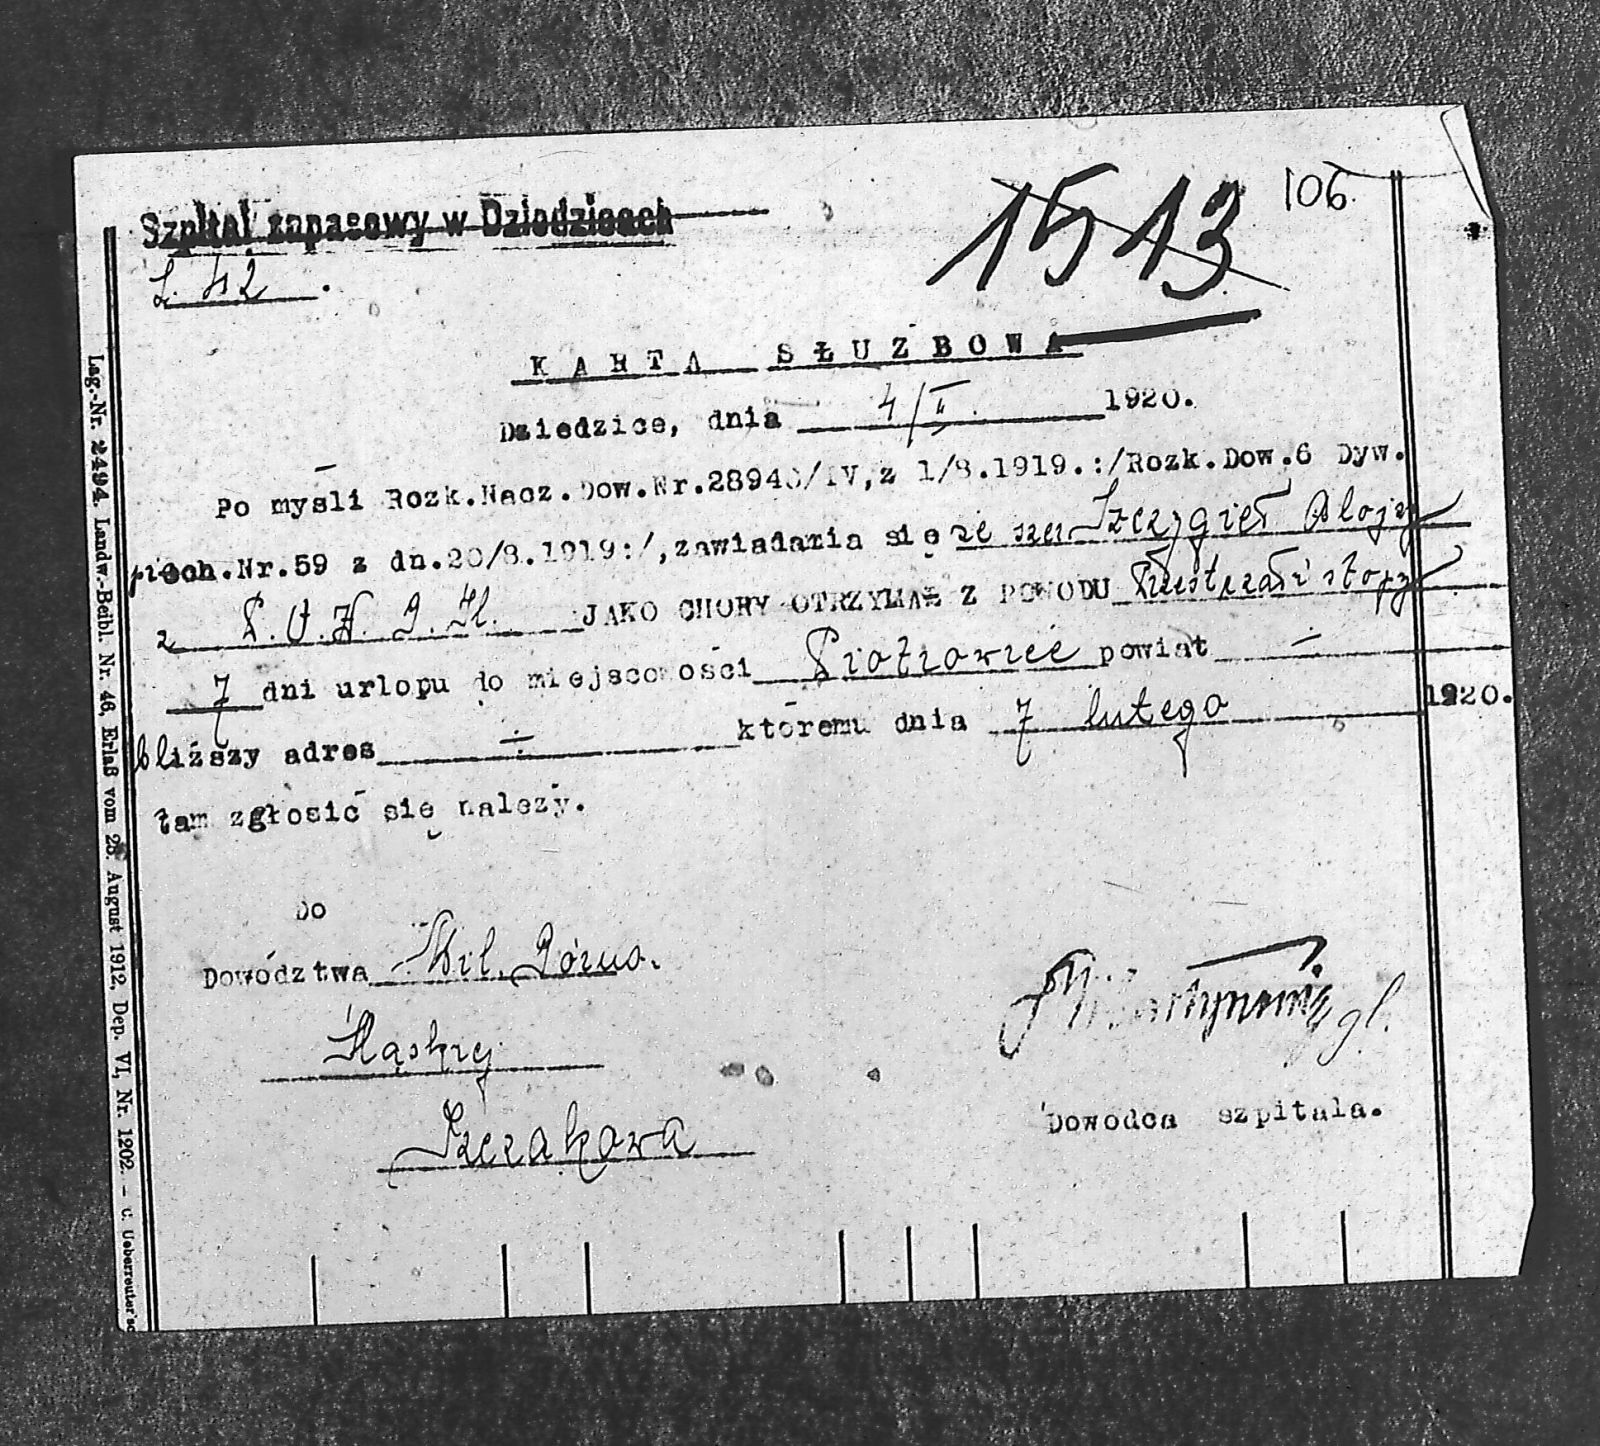 106.
1513
Szpital zapasowy w Dziedzicach
L. 42.
KARTA SŁUZBOWA
Dziedzice, dnia 4/II. 1920.
Po mysli Rozk.Nacz.Dow.Nr.28946/IV,z 1/8.1919.:/Rozk.Dow.6 Dyw.
piech.Nr.59 z dn.20/8.1919:/,zawiadamia się że szer Szczygieł Alojzy
z P.O.W. G.Śl. JAKO CHORY OTRZYMAŁ Z POWODU Przestrzał stopy
7 dni urlopu do miejscowości Piotrowice powiat ÷
bliższy adres ÷ któremu dnia 7 lutego 1920.
tam zgłosić się nalezy.
Do
Dowództwa Mil. Górno.
Śląskiej
Szczakowa
Dowodca szpitala.
Lag.-Nr. 2494. Landw.-Beibl. Nr. 46, Erlaß vom 28. August 1912, Dep. VI, Nr. 1202. — C. Ueberreuter'sc